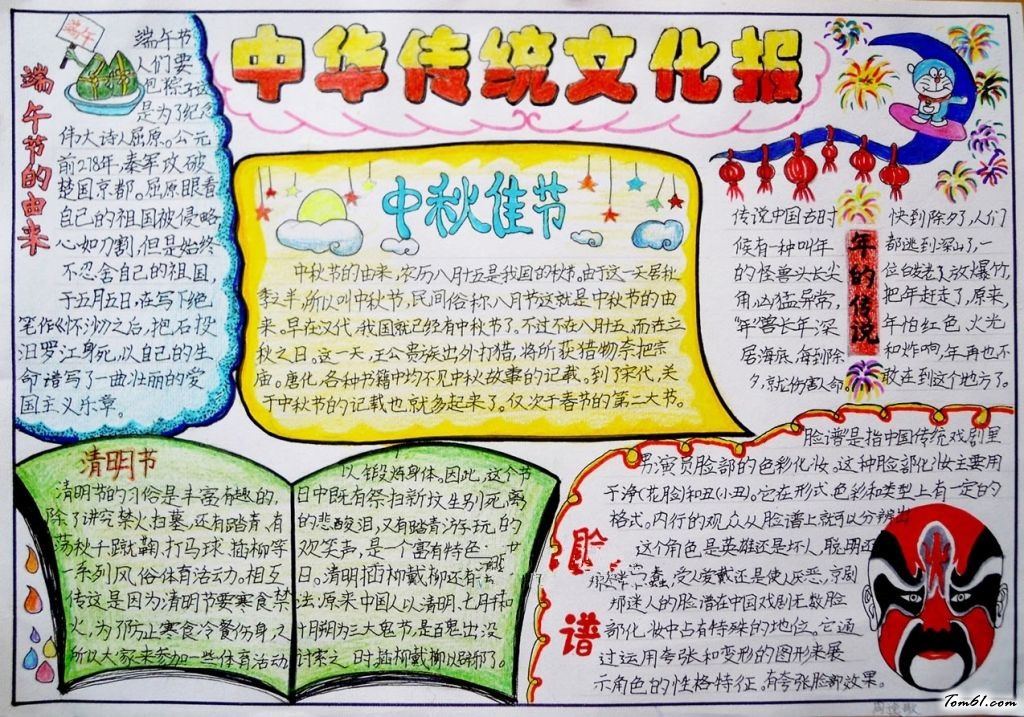 中华传统文化报
端午节的由来
端午
端午节
人们要
包粽子这
是为了纪念
伟大诗人屈原。公元
前278年,秦军攻破
楚国京都。屈原眼看
自己的祖国被侵略
心如刀割,但是始终
不忍舍自己的祖国,
于五月五日,在写下绝
笔作《怀沙》之后,抱石投
汨罗江身死,以自己的生
命谱写了一曲壮丽的爱
国主义乐章。
中秋佳节
中秋节的由来,农历八月十五是我国的秋节。由于这一天居秋
季之半,所以叫中秋节,民间俗称八月节这就是中秋节的由
来。早在汉代,我国就已经有中秋节了。不过不在八月十五,而在立
秋之日。这一天,王公贵族出外打猎,将所获猎物奈把宗
庙。唐化,各种书籍中均不见中秋故事的记载。到了宋代,关
于中秋节的记载也就多起来了。仅次于春节的第二大节。
年的传说
传说中国古时
候有一种叫年
的怪兽头长尖
角,凶猛异常,
“年”兽长年深
居海底,每到除
夕,就伤害人命。
快到除夕了,人们
都逃到深山了,一
位白发老人放爆竹,
把年赶走了,原来,
年怕红色、火光
和炸响,年再也不
敢在到这个地方了。
清明节
清明节的习俗是丰富有趣的,
除了讲究禁火扫墓,还有踏青,有
荡秋千蹴鞠,打马球,插柳等
一系列风俗体育活动。相互
传这是因为清明节要寒食禁
火,为了防止寒食冷餐伤身,又
所以大家来参加一些体育活动
以锻炼身体。因此,这个节
日中既有祭扫新坟生别死离
的悲酸泪,又有踏青游玩的
欢笑声,是一个富有特色
日。清明插柳戴柳还有
法:原来中国人以清明、七月半和
十月朔为三大鬼节,是百鬼出没
讨索之时插柳戴柳以辟邪了。
脸谱
脸谱”是指中国传统戏剧里
男演员脸部的色彩化妆。这种脸部化妆主要用
于净(花脸)和丑(小丑)。它在形式、色彩和类型上有一定的
格式。内行的观众从脸谱上就可以分辨出
这个角色是英雄还是坏人,聪明还
蠢,受人爱戴还是使人厌恶,京剧
那迷人的脸谱在中国戏剧无数脸
部化妆中占有特殊的地位。它通
过运用夸张和变形的图形来展
示角色的性格特征。有夸张脸部效果。
Tom61.com